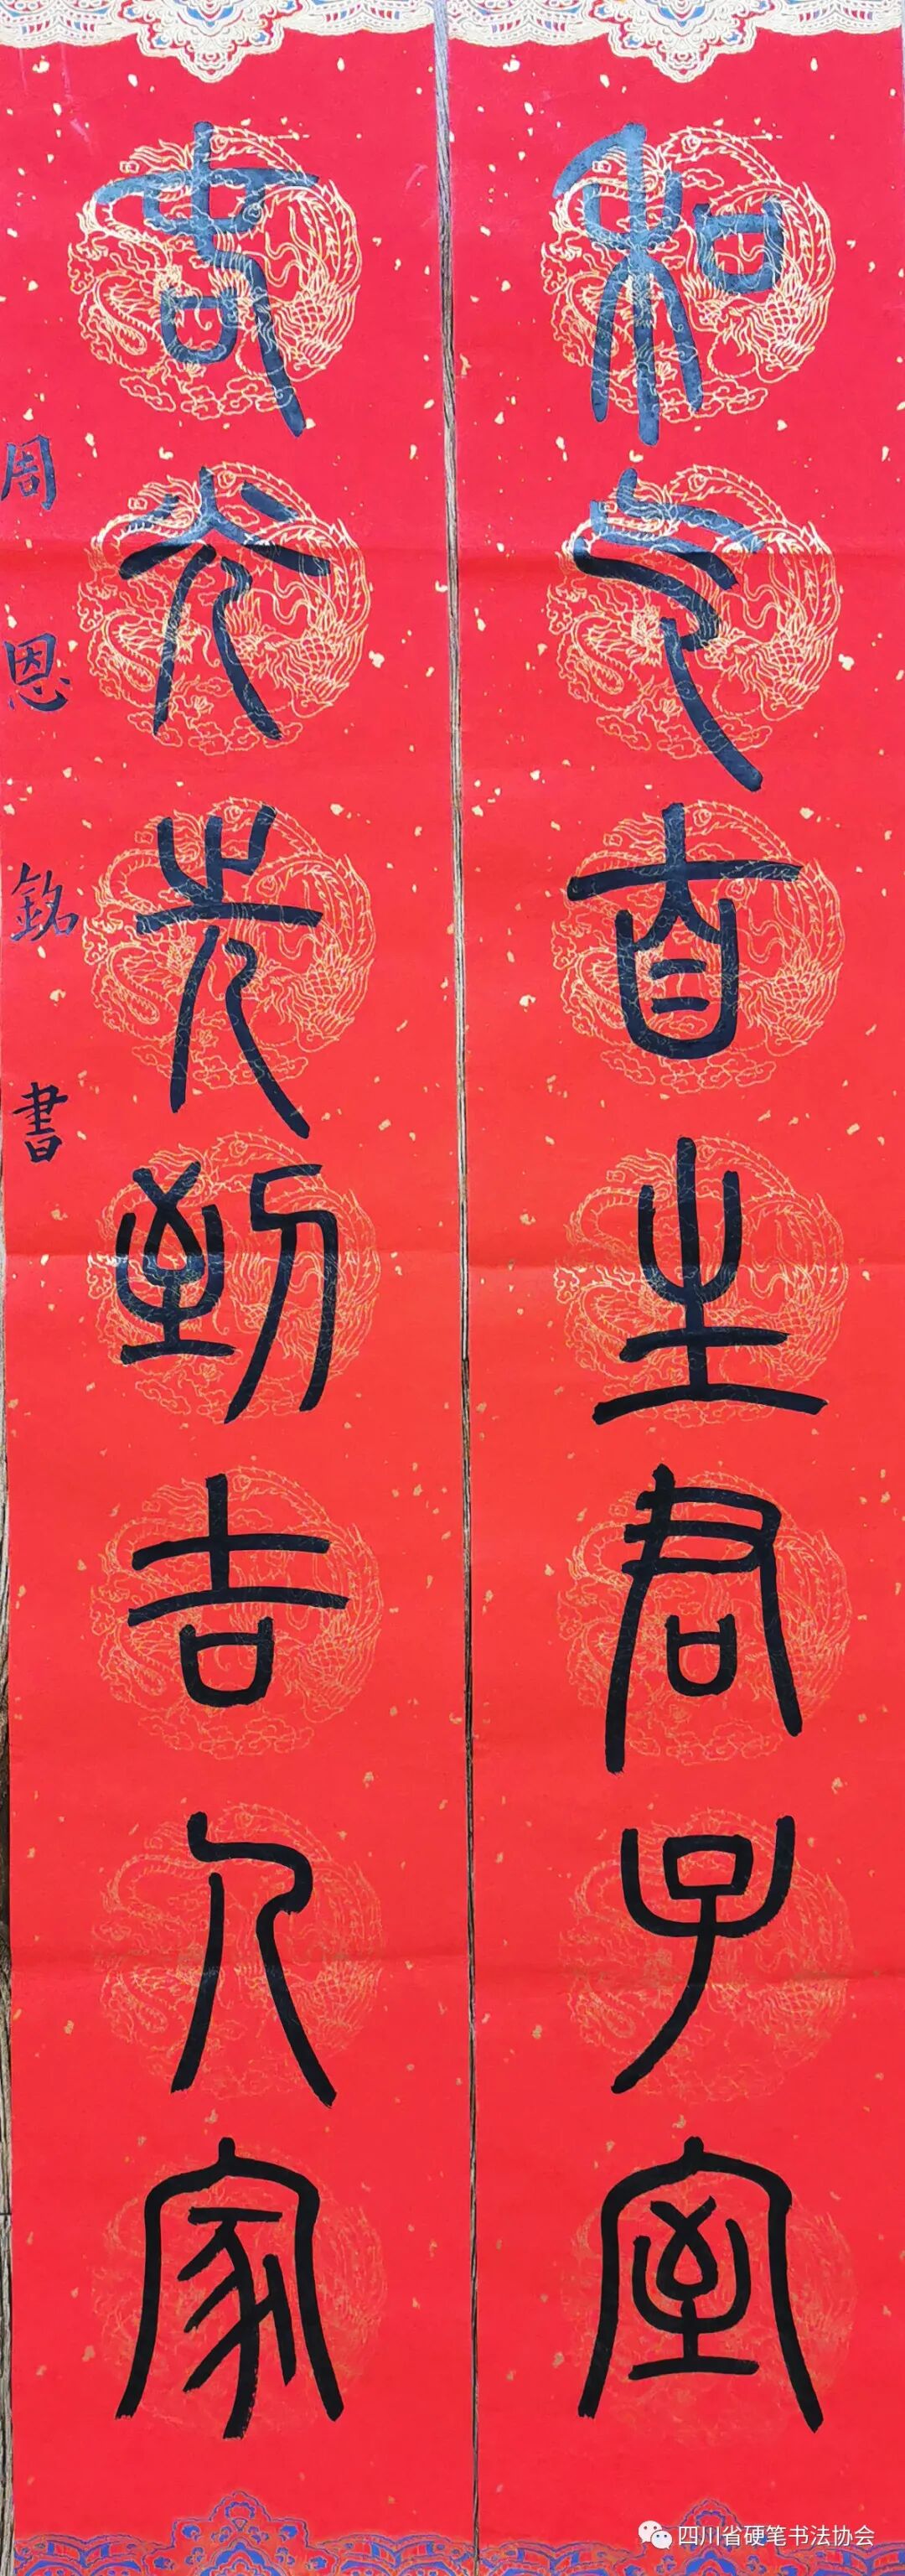 和气首生君子室
春光先到吉人家
周恩銘書
四川省硬笔书法协会